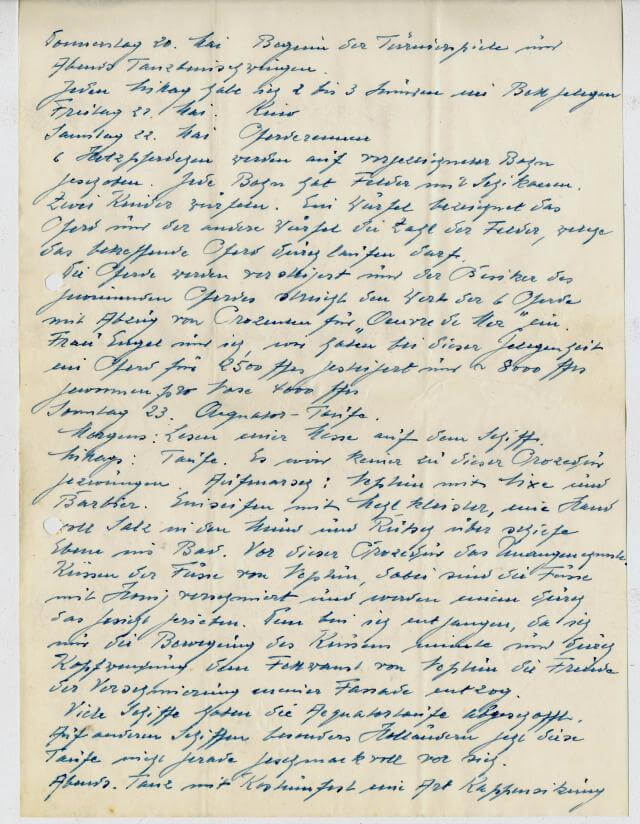 Donnerstag 20. Mai Beginn der Turnierspiele und
Abends Tanzbeinschwingen.
Jeden Mittag habe ich 2 bis 3 Stunden im Bett gelegen
Freitag 21. Mai. Kino
Samstag 22. Mai Pferderennen
6 Holzpferdchen werden auf vorgezeichneter Bahn
geschoben. Jede Bahn hat Felder mit Schikanen.
Zwei Kinder würfeln. Ein Würfel bezeichnet das
Pferd und der andere Würfel die Zahl der Felder, welche
das betreffende Pferd durchlaufen darf.
Die Pferde werden versteigert und der Besitzer des
gewinnenden Pferdes streicht den Wert der 6 Pferde
mit Abzug von Prozenten für „Oeuvre de Mer" ein.
Frau Engel und ich, wir haben bei dieser Gelegenheit
ein Pferd für 2500 ffrs gesteigert und 8000 ffrs
gewonnen pro Nase 4000 ffrs
Sonntag 23. Aequator-Taufe.
Morgens: Lesen einer Messe auf dem Schiff.
Mittags: Taufe. Es wird keiner zu dieser Prozedur
gezwungen. Aufmarsch: Neptun mit Nixe und
Barbier. Einseifen mit Mehlkleister, eine Hand
voll Salz in den Mund und Rutsch über schiefe
Ebene ins Bad. Vor dieser Prozedur das Unangenehmste.
Küssen der Füsse von Neptun, dabei sind die Füsse
mit Honig verschmiert und werden einem durch
das Gesicht gerieben. Dem bin ich entgangen, da ich
nur die Bewegung des Küssens mimte und durch
Kopfwendung dem Fettwanst von Neptun die Freude
der Verschmierung meiner Fassade entzog.
Viele Schiffe haben die Aequatortaufe abgeschafft.
Auf anderen Schiffen besonders Holländern geht diese
Taufe nicht gerade geschmackvoll vor sich.
Abends. Tanz mit Kostümfest eine Art Kappensitzung